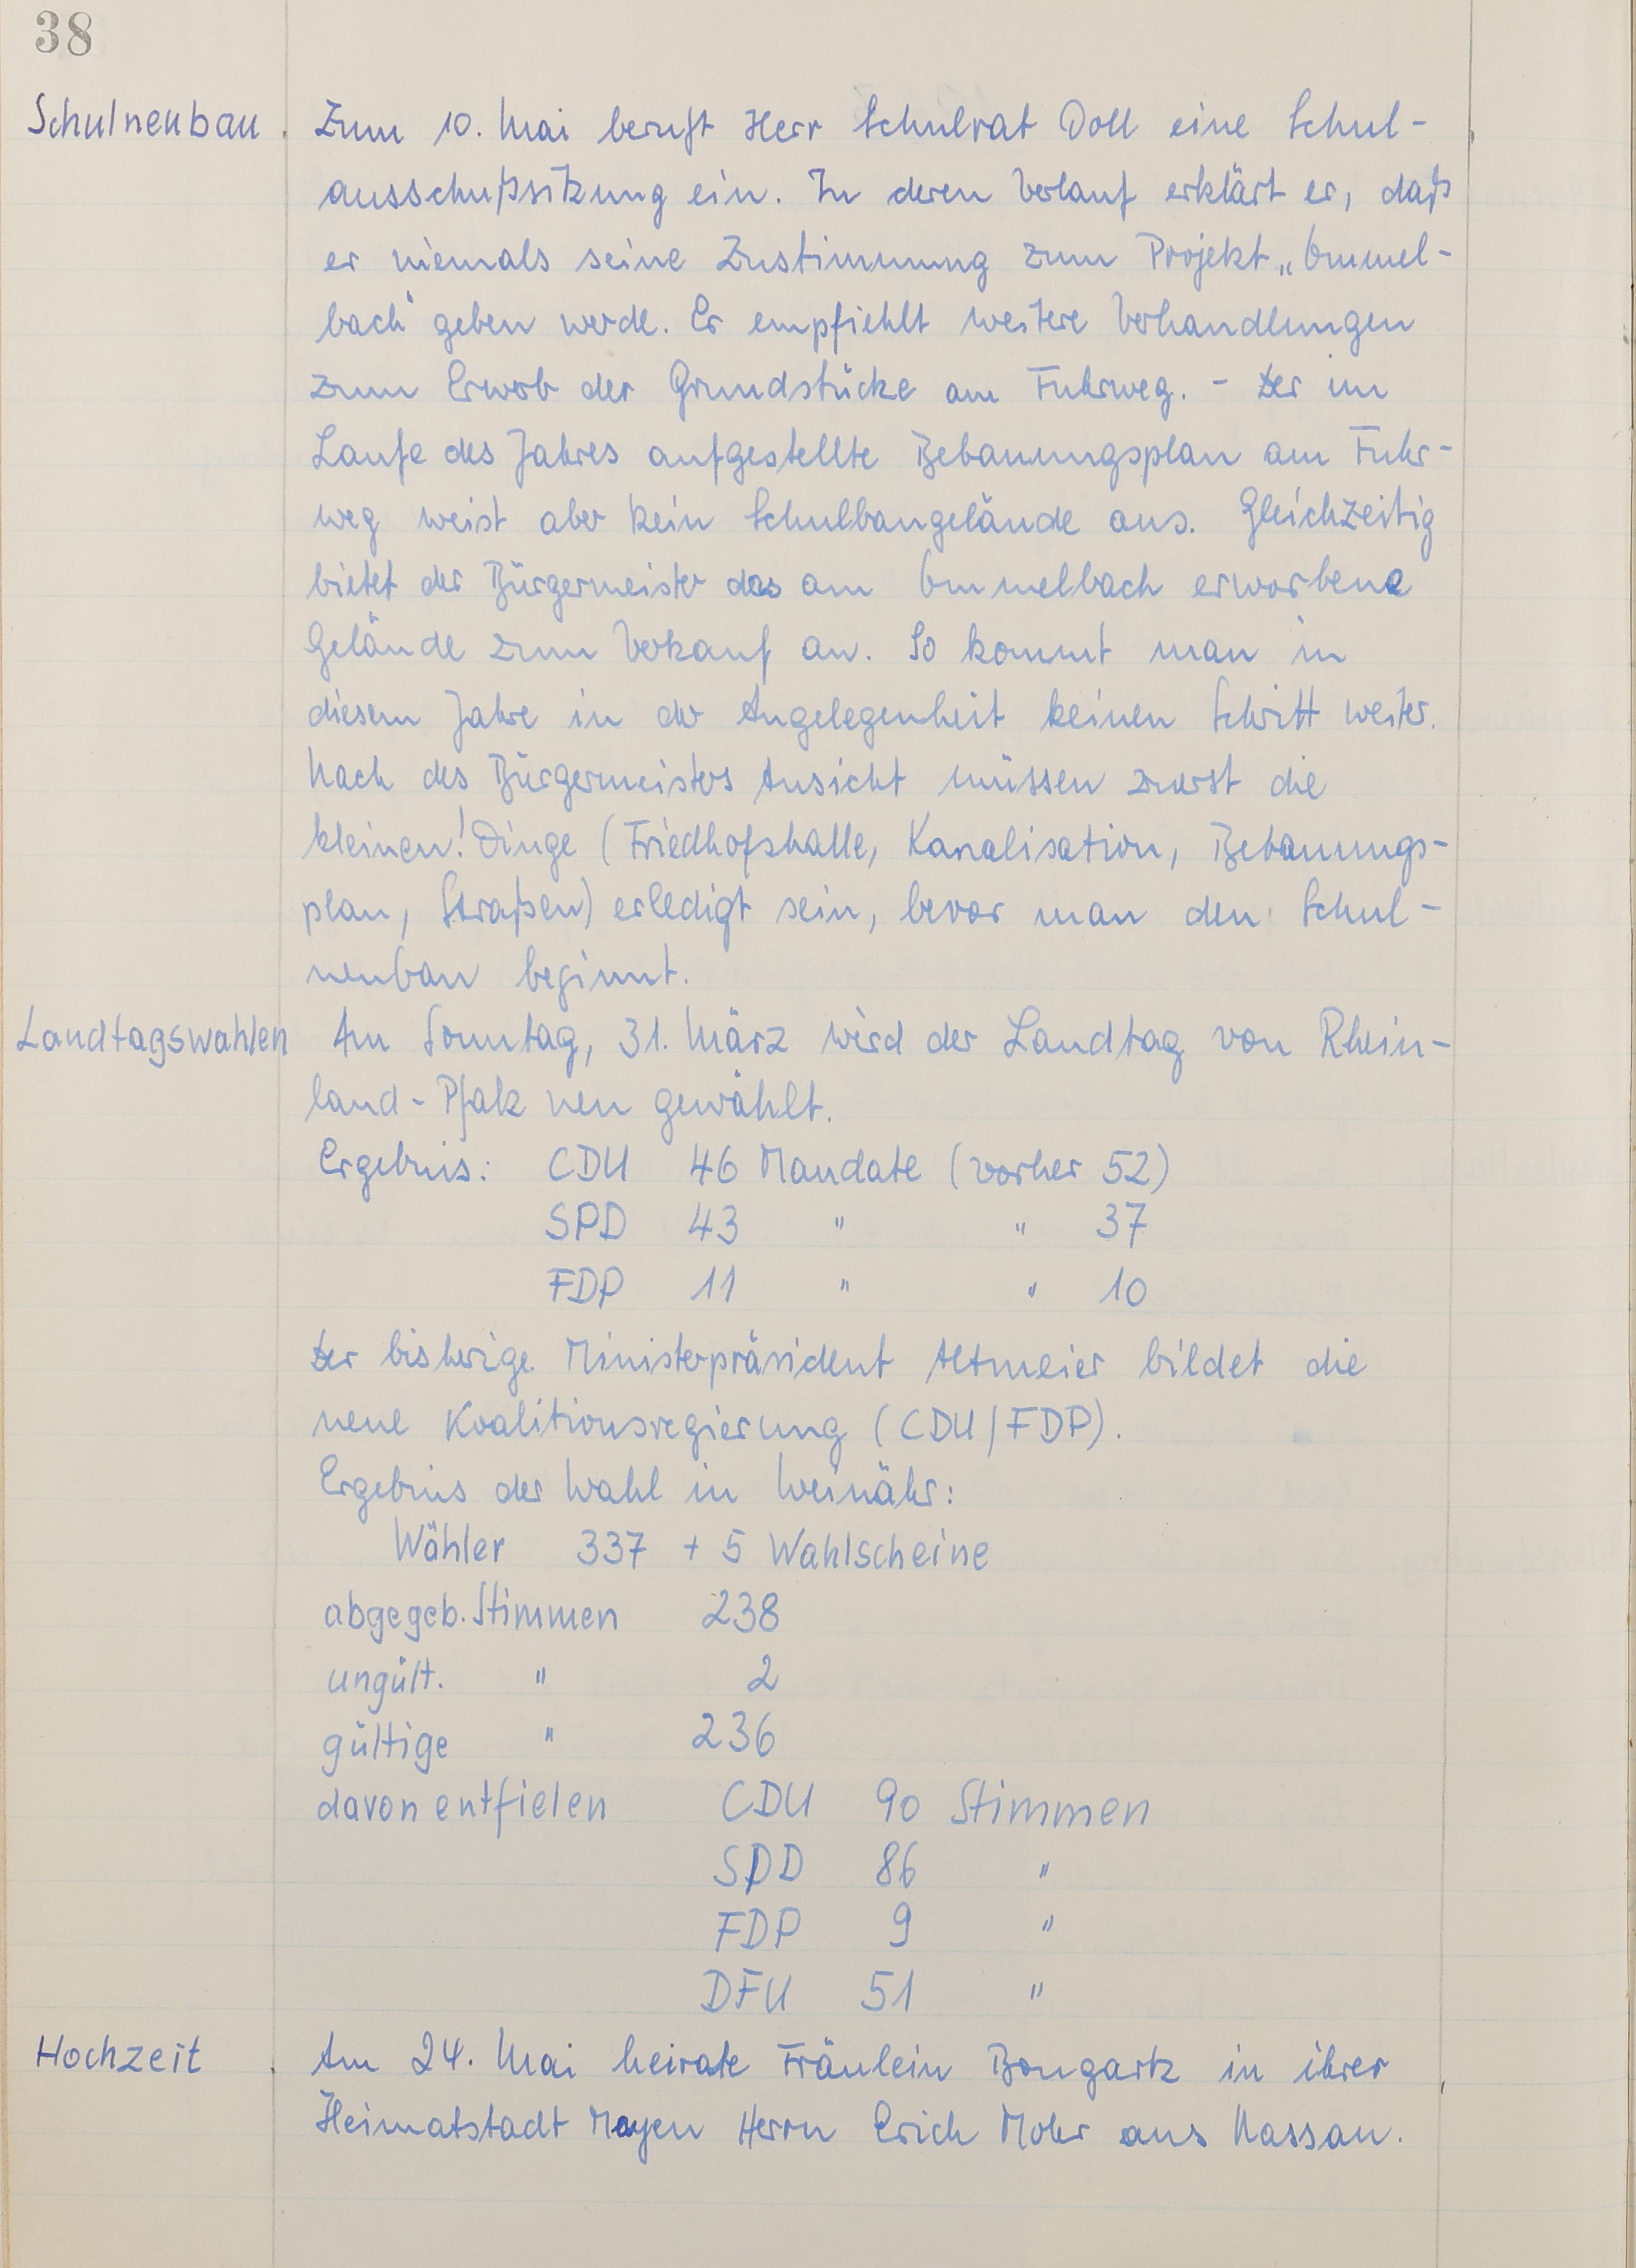 38
Schulneubau. Zum 10. Mai beruft Herr Schulrat Doll eine Schul-
ausschußsitzung ein. In deren Verlauf erklärt er, daß
er niemals seine Zustimmung zum Projekt „Ommel-
bach“ geben werde. Er empfiehlt weitere Verhandlungen
zum Erwerb der Grundstücke am Fuhrweg. - Der im
Laufe des Jahres aufgestellte Bebauungsplan am Fuhr-
weg weist aber kein Schulbaugelände aus. Gleichzeitig
bietet der Bürgermeister das am Ommelbach erworbene
Gelände zum Verkauf an. So kommt man in
diesem Jahre in der Angelegenheit keinen Schritt weiter.
Nach des Bürgermeisters Ansicht müssen zuerst die
kleinen! Dinge (Friedhofshalle, Kanalisation, Bebauungs-
plan, Straßen) erledigt sein, bevor man den Schul-
neubau beginnt.
Landtagswahlen Am Sonntag, 31. März wird der Landtag von Rhein-
land-Pfalz neu gewählt.
Ergebnis: CDU 46 Mandate (vorher 52)
SPD 43 " " 37
FDP 11 " " 10
Der bisherige Ministerpräsident Altmeier bildet die
neue Koalitionsregierung (CDU/FDP).
Ergebnis der Wahl in Weinähr:
Wähler 337 + 5 Wahlscheine
abgegeb. Stimmen 238
ungült. " 2
gültige " 236
davon entfielen CDU 90 Stimmen
SPD 86 "
FDP 9 "
DFU 51 "
Hochzeit. Am 24. Mai heirate Fräulein Bongartz in ihrer
Heimatstadt Mayen Herrn Erich Mohr aus Nassau.